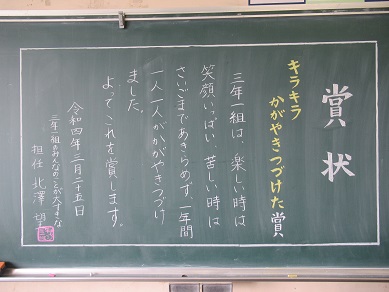 賞状
キラキラ
かがやきつづけた賞
三年一組は、楽しい時は
笑顔いっぱい、苦しい時は
さいごまであきらめず、一年間
一人一人がかがやきつづけ
ました。
よってこれを賞します。
令和四年三月二十五日
三年一組のみんなのことが大すきな
担任 北澤 望